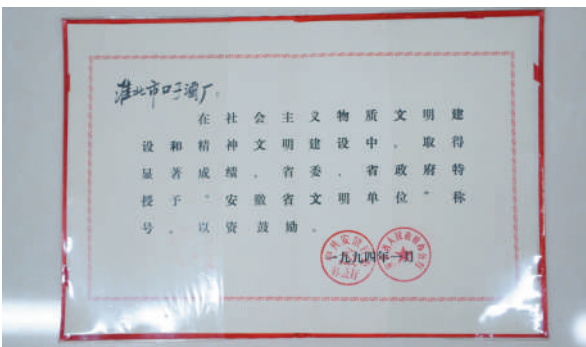 淮北市口子酒厂：
在社会主义物质文明建
设和精神文明建设中，取得
显著成绩，省委、省政府特
授予“安徽省文明单位”称
号，以资鼓励。
一九九四年一月